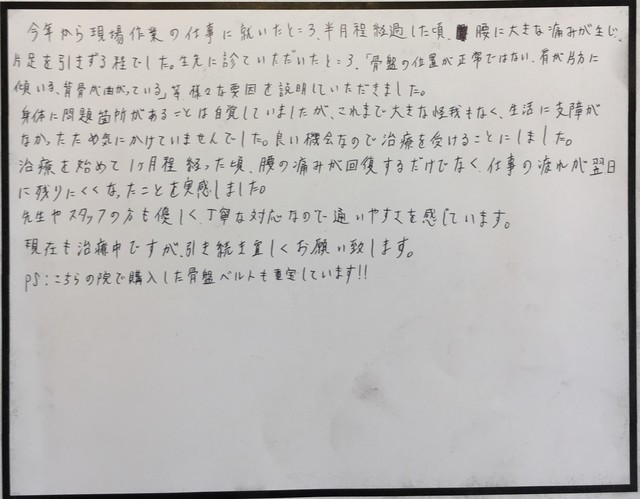 今年から現場作業の仕事に就いたところ、半月程経過した頃、腰に大きな痛みが生じ、
片足を引きずる程でした。先生に診ていただいたところ、「骨盤の位置が正常ではない、肩が片方に
傾いる、背骨が曲がっている」等 様々な要因を説明していただきました。
身体に問題箇所があることは自覚していましたが、これまで大きな怪我もなく、生活に支障が
なかったため気にかけていませんでした。良い機会なので治療を受けることにしました。
治療を始めて1ヶ月程経った頃、腰の痛みが回復するだけでなく、仕事の疲れが翌日
に残りにくくなったことを実感しました。
先生やスタッフの方も優しく、丁寧な対応なので通いやすさを感じています。
現在も治療中ですが、引き続き宜しくお願い致します。
PS:こちらの院で購入した骨盤ベルトも重宝しています!!